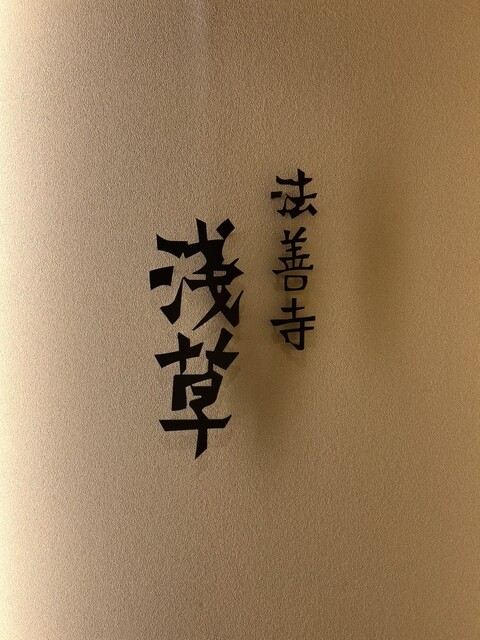 法善寺
浅草